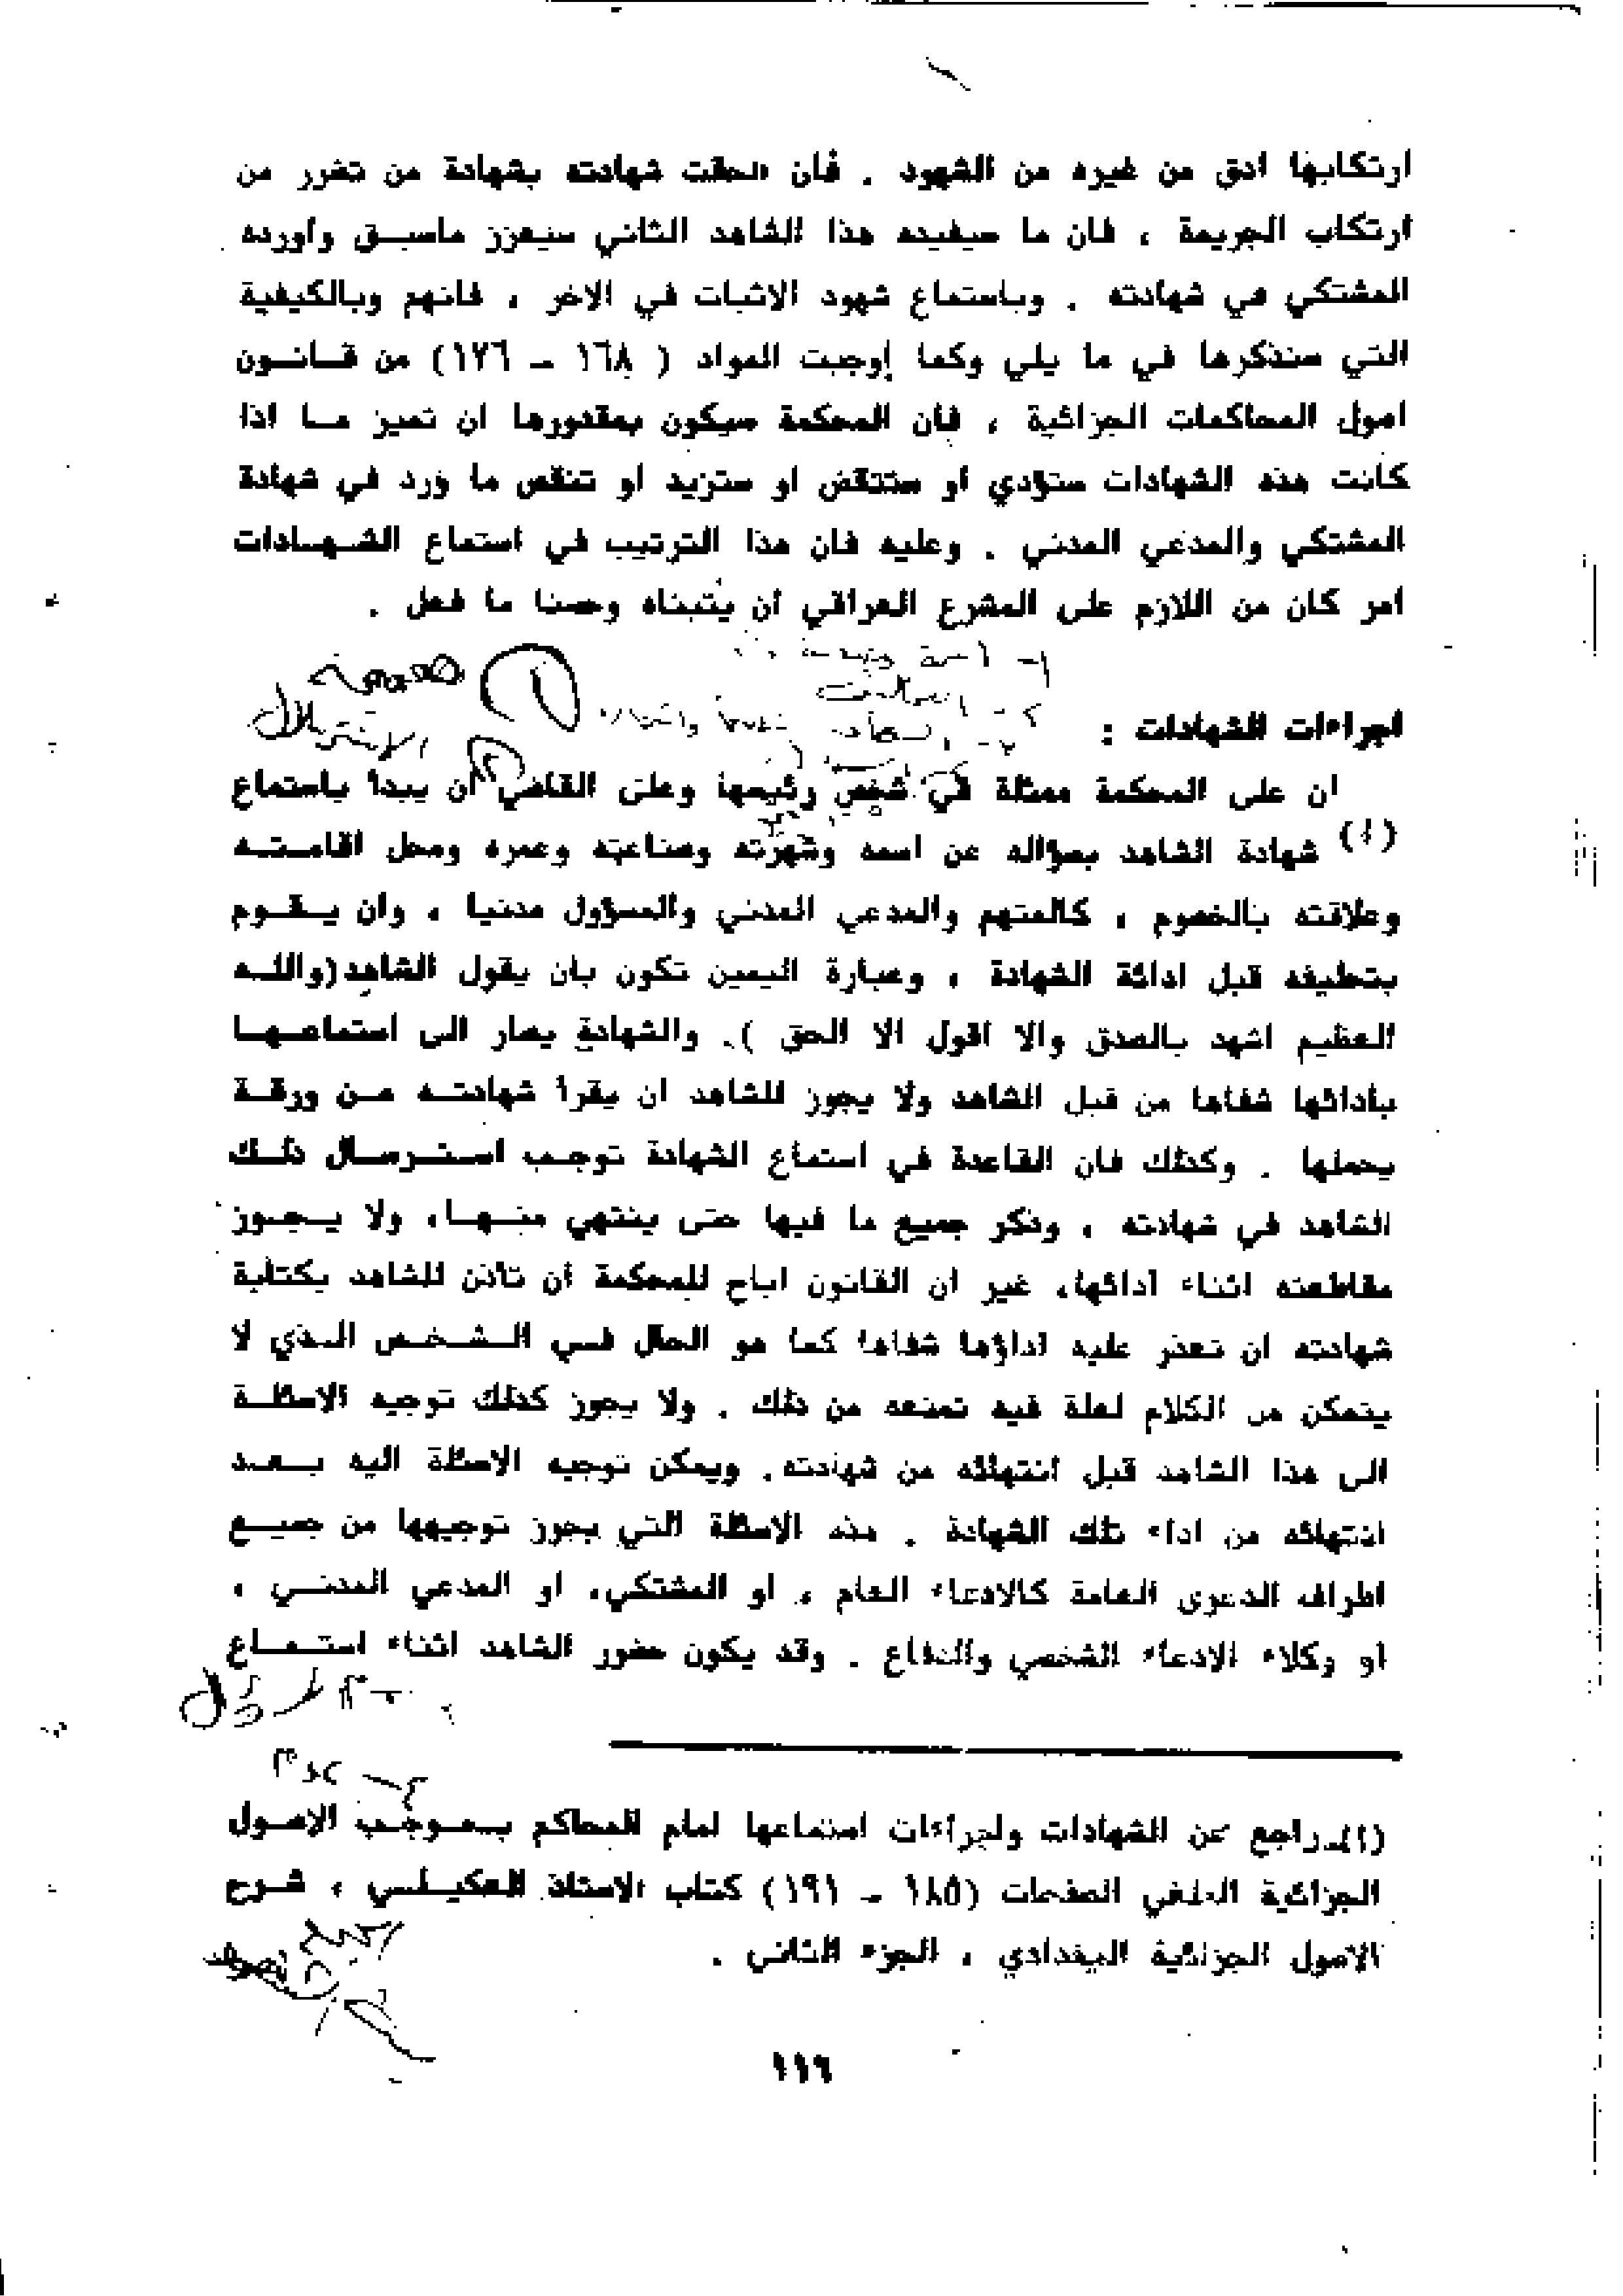 ارتكابها ادق من غيره من الشهود . فأن الحقت شهادته بشهادة من تضرر من
ارتكاب الجريمة ، فان ما سيفيده هذا الشاهد الثاني سيعزز ماسبق واورده
المشتكي في شهادته . وباستماع شهود الاثبات في الاخر ، فانهم وبالكيفية
التي سنذكرها في ما يلي وكما اوجبت المواد ( ١٦٨ ـ ١٧٦) من قـانـون
اصول المحاكمات الجزائية ، فأن المحكمة سيكون بمقدورها ان تميز مـا اذا
كانت هذه الشهادات ستؤدي او ستنقض او ستزيد او تنقص ما ورد في شهادة
المشتكي والمدعي المدني . وعليه فان هذا الترتيب في استماع الشـهـادات
امر كان من اللازم على المشرع العراقي ان يتبناه وحسنا ما فعل .
اجراءات الشهادات :
ان على المحكمة ممثلة في شخص رئيسها وعلى القاضي ان يبدأ باستماع
(١) شهادة الشاهد بسؤاله عن اسمه وشهرته وصناعته وعمره ومحل اقامـتـه
وعلاقته بالخصوم ، كالمتهم والمدعي المدني والمسؤول مدنيا ، وان يـقـوم
بتحليفه قبل ادائة الشهادة ، وعبارة اليمين تكون بان يقول الشاهد(واللـه
العظيم اشهد بالصدق والا اقول الا الحق ). والشهادة يصار الى استماعـهـا
بأدائها شفاها من قبل الشاهد ولا يجوز للشاهد ان يقرأ شهادتـه مـن ورقـة
يحملها . وكذلك فان القاعدة في استماع الشهادة توجـب اسـتـرسـال ذلـك
الشاهد في شهادته ، وذكر جميع ما فيها حتى ينتهي منـهـا، ولا يـجـوز
مقاطعته اثناء ادائها، غير ان القانون اباح للمحكمة ان تأذن للشاهد بكتابة
شهادته ان تعذر عليه اداؤها شفاها كما هو الحال فـي الـشـخـص الـذي لا
يتمكن من الكلام لعلة فيه تمنعه من ذلك . ولا يجوز كذلك توجيه الاسئلـة
الى هذا الشاهد قبل انتهائه من شهادته. ويمكن توجيه الاسئلة اليه بـعـد
انتهائه من اداء تلك الشهادة . هذه الاسئلة التي يجوز توجيهها من جميـع
اطراف الدعوى العامة كالادعاء العام ، او المشتكي، او المدعي المدنـي ،
او وكلاء الادعاء الشخصي والدفاع . وقد يكون حضور الشاهد اثناء استـمـاع
(١)ـ راجع عن الشهادات واجراءات استماعها امام المحاكم بـمـوجـب الاصـول
الجزائية الملغي الصفحات (١٨٥ ـ ١٩١) كتاب الاستاذ العكيـلـي ، شـرح
الاصول الجزائية البغدادي ، الجزء الثاني .
١١٦